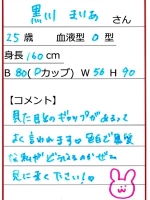 黒川 まりあ さん
25歳 血液型 O型
身長 160cm
B 80(Dカップ) W 56 H 90
【コメント】
見た目とのギャップがあるって
よく言われます♥ 色白で真質
な私がどうなるのかぜひ
見に来て下さい!